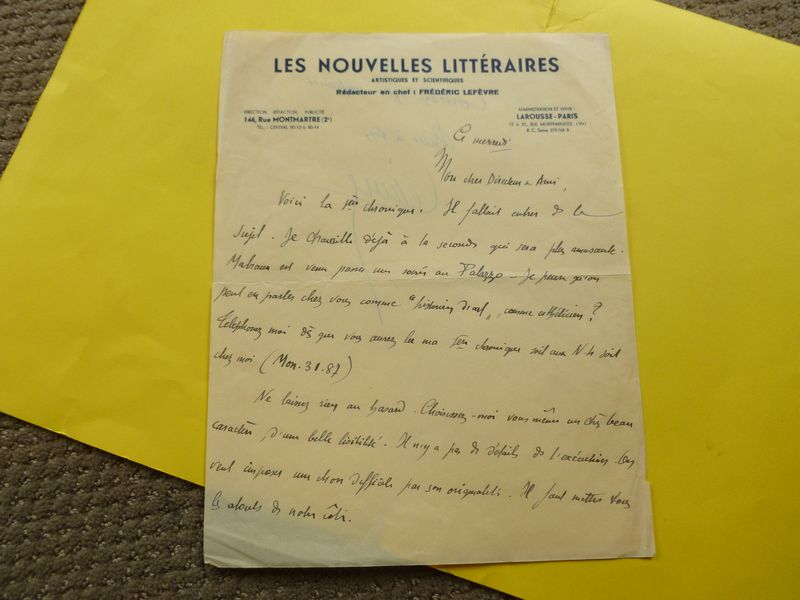 LES NOUVELLES LITTÉRAIRES
ARTISTIQUES ET SCIENTIFIQUES
Rédacteur en chef : FRÉDÉRIC LEFÈVRE
DIRECTION, RÉDACTION, PUBLICITÉ
146, Rue MONTMARTRE (2e)
TÉL. : CENTRAL
ADMINISTRATION ET VENTE :
LAROUSSE - PARIS
13 à 21, RUE MONTPARNASSE (VIe)
R. C. Seine
Ce mercredi
Mon cher Directeur & Ami,
Voici la 1ère chronique. Il fallait entrer ds le
sujet. Je travaille déjà à la seconde qui sera plus amusante.
Malraux est venu passer une soirée au Palazzo - Je pense qu'on
peut en parler chez vous comme "historien d'art", comme esthéticien ?
Téléphonez moi dès que vous aurez lu ma 1ère chronique soit aux N. L. soit
chez moi (Mon. 31.87)
Ne laissez rien au hasard. Choisissez-moi vous même un très beau
caractère, d'une belle lisibilité. Il n'y a pas de détails de l'exécution. On
veut imposer une chose difficile par son originalité. Il faut mettre tous
les atouts de notre côté.